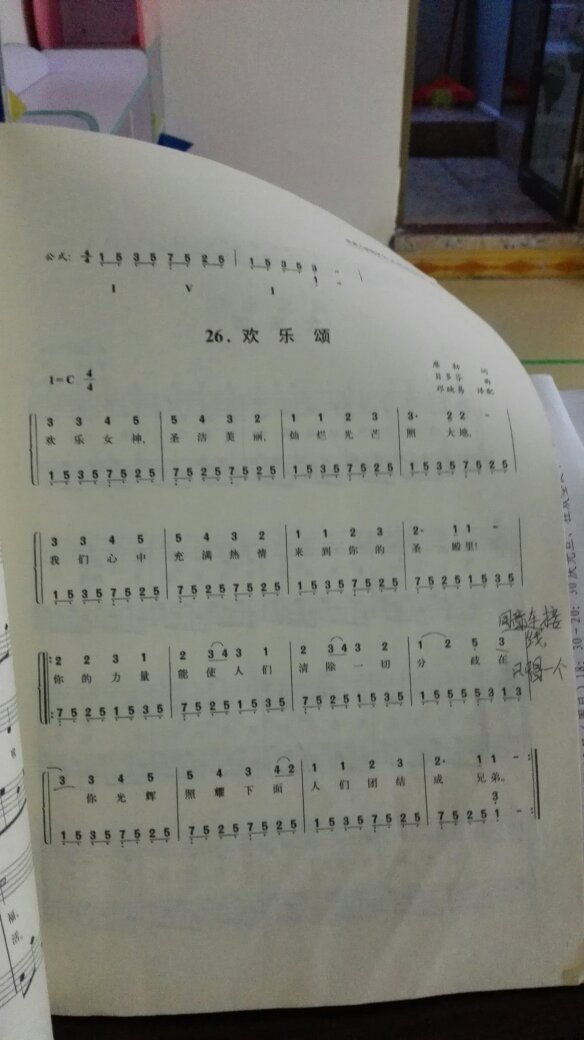 公式： 4/4 1 5 3 5 7 5 2 5 | 1 5 3 5 3 1 - |
I V I
26. 欢 乐 颂
1=C 4/4
席 勒 词
贝多芬 曲
邓映易 译配
3 3 4 5 | 5 4 3 2 | 1 1 2 3 | 3· 2 2 - |
欢 乐 女 神， 圣 洁 美 丽， 灿 烂 光 芒 照 大 地，
1 5 3 5 7 5 2 5 | 7 5 2 5 7 5 2 5 | 1 5 3 5 7 5 2 5 | 1 5 3 5 7 5 2 5
3 3 4 5 | 5 4 3 2 | 1 1 2 3 | 2· 1 1 - |
我 们 心 中 充 满 热 情 来 到 你 的 圣 殿 里！
1 5 3 5 7 5 2 5 | 7 5 2 5 7 5 2 5 | 1 5 3 5 7 5 2 5 | 7 5 2 5 1 5 3 5
2 2 3 1 | 2 3 4 3 1 | 2 3 4 3 2 | 1 2 5 3
你 的 力 量 能 使 人 们 清 除 一 切 分 歧 在
7 5 2 5 1 5 3 5 | 7 5 2 5 1 5 3 5 | 7 5 2 5 7 5 2 5 | 1 5 5 5 5 5 1 3
3 3 4 5 | 5 4 3 4 2 | 1 1 2 3 | 2· 1 1 -
你 光 辉 照 耀 下 面 人 们 团 结 成 兄 弟。
1 5 3 5 7 5 2 5 | 7 5 2 5 7 5 2 5 | 1 5 3 5 7 5 2 5 | 7 5 2 5 3 1 -
同音连接
线，
只唱一个
18：30－20：30
福，
活，